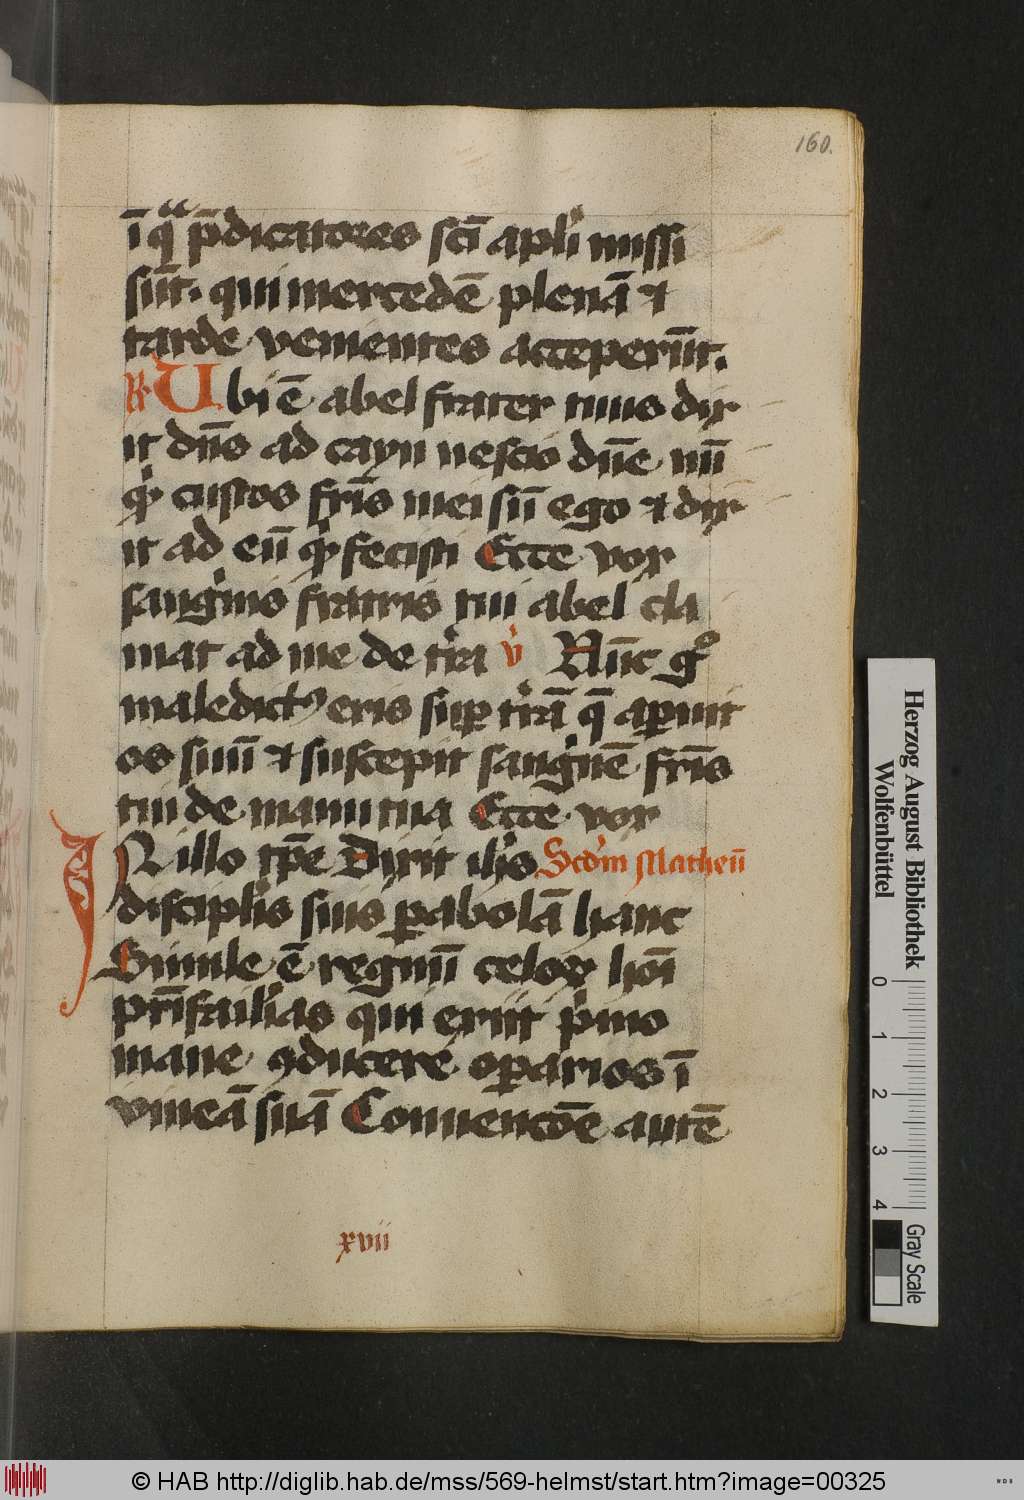 160.
ī qͣ p̄dicatores scī apl'i missi
sūt. qui mercedē plenā ⁊
tarde venientes acceperūt.
℟ Ubi ē abel frater tuus dix
it dn̄s ad cayn nescio dn̄e nū
qͥd custos fr̄is mei sū ego ⁊ dix
it ad eū qͥd fecisti Ecce vox
sangͥnis fratris tui abel cla
mat ad me de tr̄ra v̓ Nūc gͦ
maledictꝰ eris suꝑ tr̄rā q̄ aꝑuit
os suū ⁊ suscepit sangͥnē fr̄is
tui de manu tua Ecce vox
IN illo tp̄e Dixit ih̄s Scd'm Matheū
discipl'is suis ꝑabolā hanc
Simile ē regnū celoꝝ hōi
pr̄ifamil'ias qui exiit pͥmo
mane ꝯducere oꝑarios ī
vineā suā Conuencōe autē
xvii
Herzog August Bibliothek
Wolfenbüttel
0
1
2
3
4
Gray Scale
© HAB http://diglib.hab.de/mss/569-helmst/start.htm?image=00325